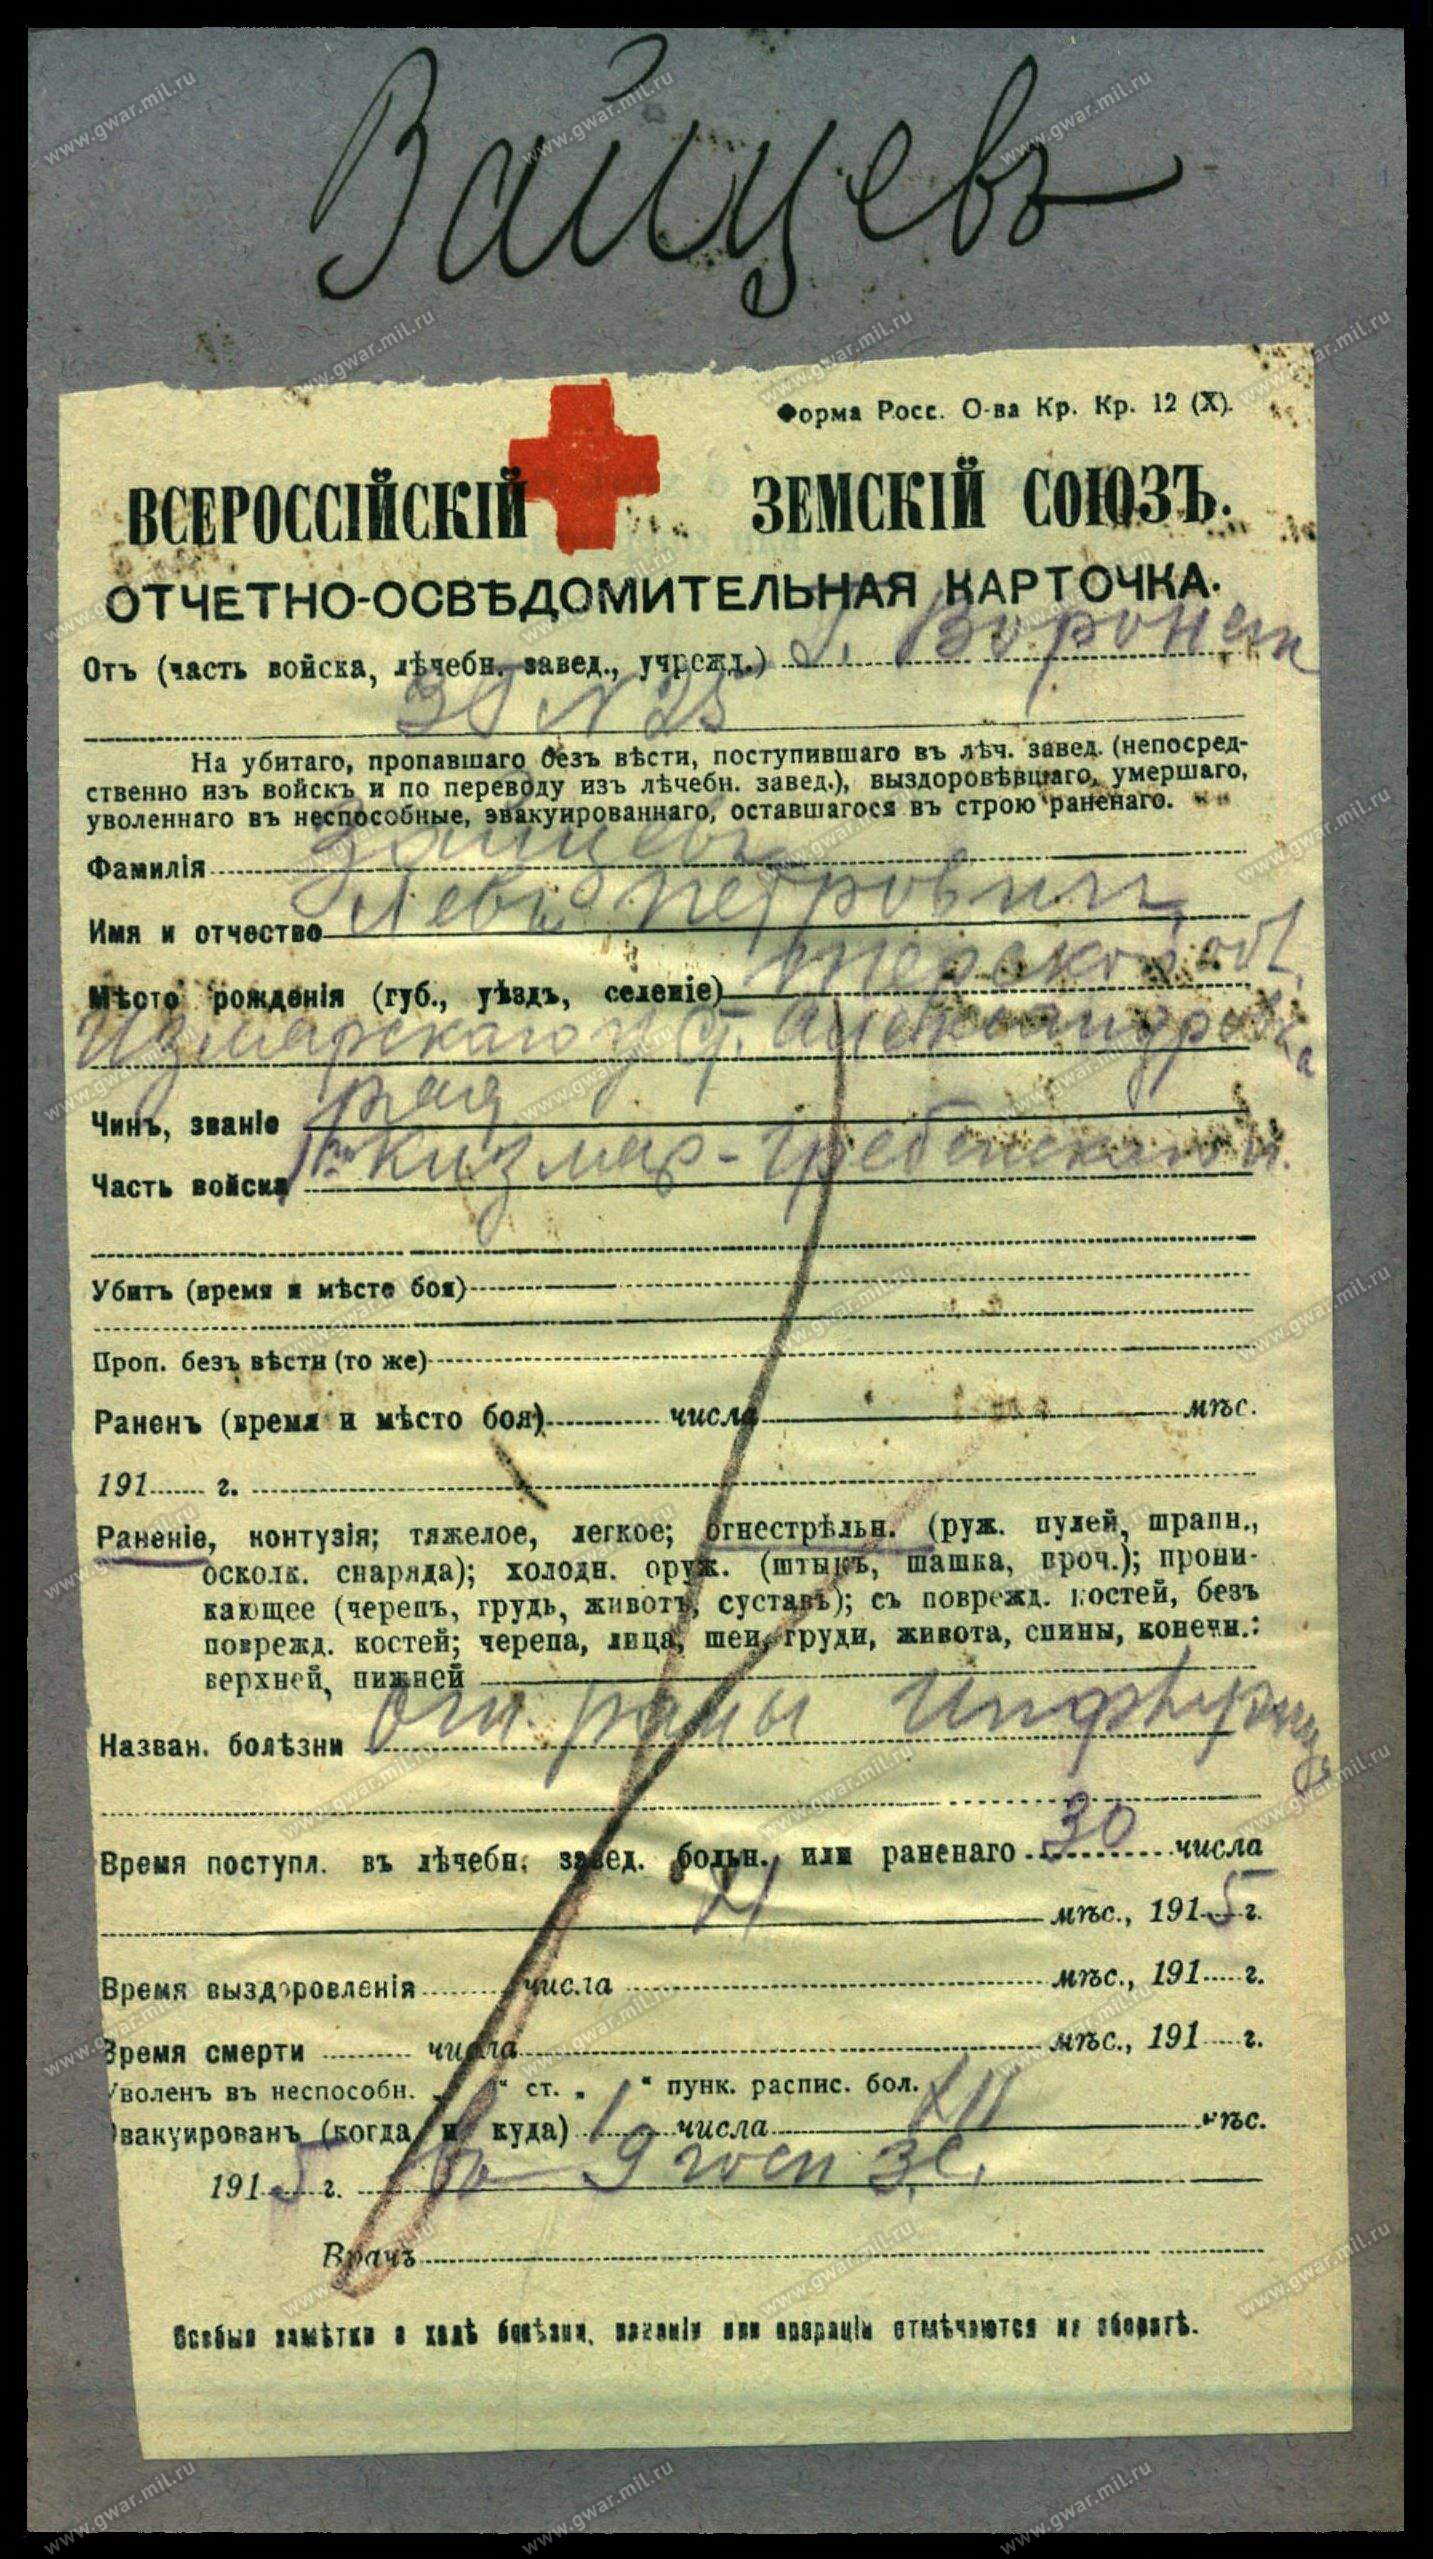 Зайцевъ
Форма Росс. О-ва Кр. Кр. 12 (X).
ВСЕРОССІЙСКІЙ ЗЕМСКІЙ СОЮЗЪ.
ОТЧЕТНО-ОСВѢДОМИТЕЛЬНАЯ КАРТОЧКА.
Отъ (часть войска, лѣчебн. завед., учрежд.) г. Воронеж
№ 25
На убитаго, пропавшаго безъ вѣсти, поступившаго въ лѣч. завед. (непосред-
ственно изъ войскъ и по переводу изъ лѣчебн. завед.), выздоровѣвшаго, умершаго,
уволеннаго въ неспособные, эвакуированнаго, оставшагося въ строю раненаго.
Фамилія Зайцевъ
Имя и отчество Левъ Петровичъ
Мѣсто рожденія (губ., уѣздъ, селеніе) Терской обл.
ст. Александровка
Чинъ, званіе ряд
Часть войска 1й Кизляр-Гребенского п.
Убитъ (время и мѣсто боя)
Проп. безъ вѣсти (то же)
Раненъ (время и мѣсто боя) числа мѣс.
191 г.
Раненіе, контузія; тяжелое, легкое; огнестрѣльн. (руж. пулей, шрапн.,
осколк. снаряда); холодн. оруж. (штыкъ, шашка, проч.); прони-
кающее (черепъ, грудь, животъ, суставъ); съ поврежд. костей, безъ
поврежд. костей; черепа, лица, шеи, груди, живота, спины, конечн.:
верхней, нижней
Назван. болѣзни Огн. раны
Время поступл. въ лѣчебн. завед. больн. или раненаго 30 числа
XI мѣс., 1915 г.
Время выздоровленія числа мѣс., 191 г.
Время смерти числа мѣс., 191 г.
Уволенъ въ неспособн. „ “ ст. „ “ пунк. распис. бол.
Эвакуированъ (когда и куда) 1 числа XII мѣс.
1915 г. во 9 госп З.С.
Врачъ
Особыя замѣтки о ходѣ болѣзни, раненія или операціи отмѣчаются на оборотѣ.
www.gwar.mil.ru